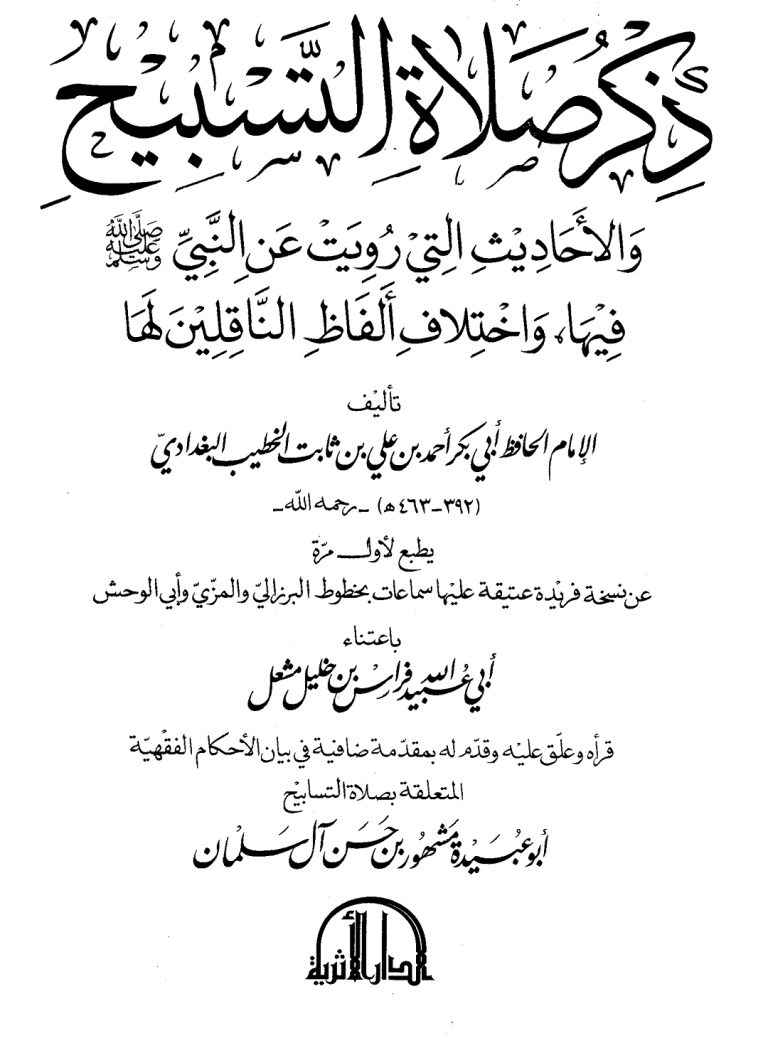 ذِكْرُ صَلَاةِ التَّسْبِيْحِ
وَالأَحَادِيْثِ الَّتِيْ رُوِيَتْ عَنِ النَّبِيِّ ﷺ
فِيْهَا، وَاخْتِلافِ أَلفَاظِ النَّاقِلِيْنَ لَهَا
تأليْف
الإمام الحافظ أبي بكر أحمد بن علي بن ثابت الخطيب البغداديّ
(٣٩٢-٤٦٣ ه) - رحمه الله -
يطبع لأول مرّة
عن نسخة فريْدة عتيقة عليْها سماعات بخطوط البرزاليّ والمزّيّ وأبي الوحش
باعتناء
أبي عُبيد الله فراس بن خليل مشعل
قرأه وعلّق عليْه وقدّم له بمقدّمة ضافية في بيان الأحكام الفقْهيّة
المتعلقة بصلاة التسابيْح
أبو عُبيْدة مَشهُور بن حَسَن آل سَلْمان
الدار الأثرية